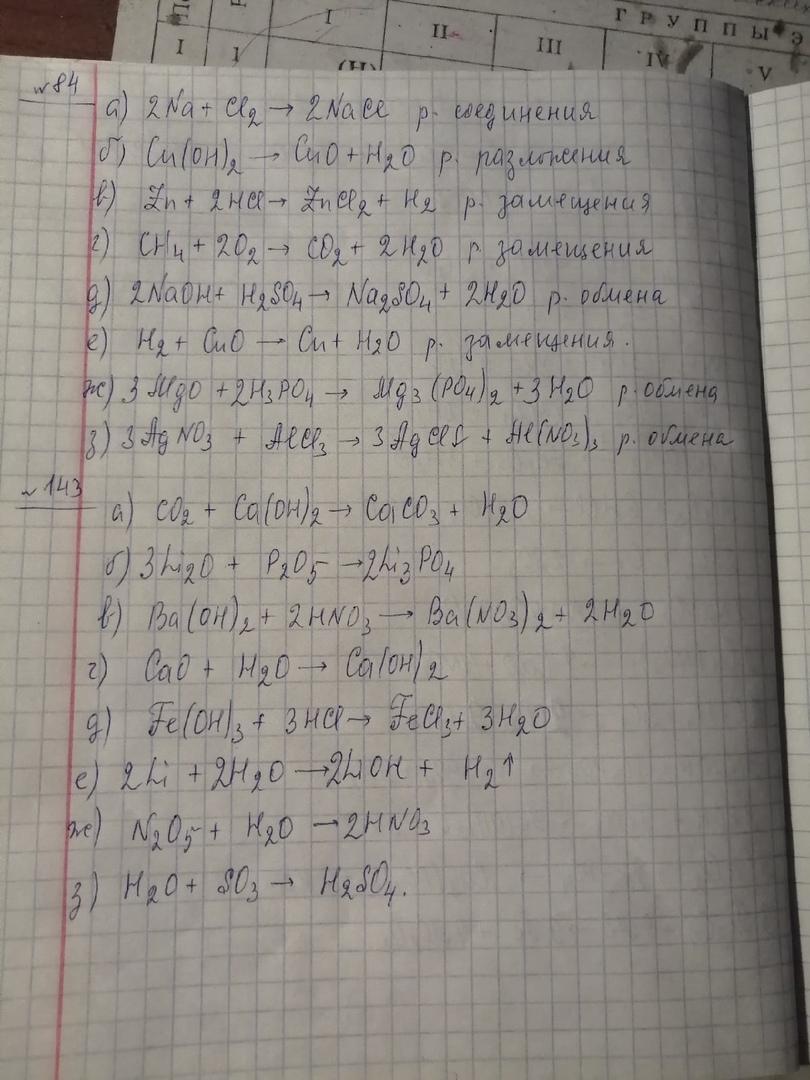 ГРУППЫ Э
I I I II III IV V
(H)
№84
а) 2Na + Cl₂ → 2NaCl р. соединения
б) Cu(OH)₂ → CuO + H₂O р. разложения
в) Zn + 2HCl → ZnCl₂ + H₂ р. замещения
г) CH₄ + 2O₂ → CO₂ + 2H₂O р. замещения
д) 2NaOH + H₂SO₄ → Na₂SO₄ + 2H₂O р. обмена
е) H₂ + CuO → Cu + H₂O р. замещения.
ж) 3MgO + 2H₃PO₄ → Mg₃(PO₄)₂ + 3H₂O р. обмена
з) 3AgNO₃ + AlCl₃ → 3AgCl↓ + Al(NO₃)₃ р. обмена
№143
а) CO₂ + Ca(OH)₂ → CaCO₃ + H₂O
б) 3Li₂O + P₂O₅ → 2Li₃PO₄
в) Ba(OH)₂ + 2HNO₃ → Ba(NO₃)₂ + 2H₂O
г) CaO + H₂O → Ca(OH)₂
д) Fe(OH)₃ + 3HCl → FeCl₃ + 3H₂O
е) 2Li + 2H₂O → 2LiOH + H₂↑
ж) N₂O₅ + H₂O → 2HNO₃
з) H₂O + SO₃ → H₂SO₄.